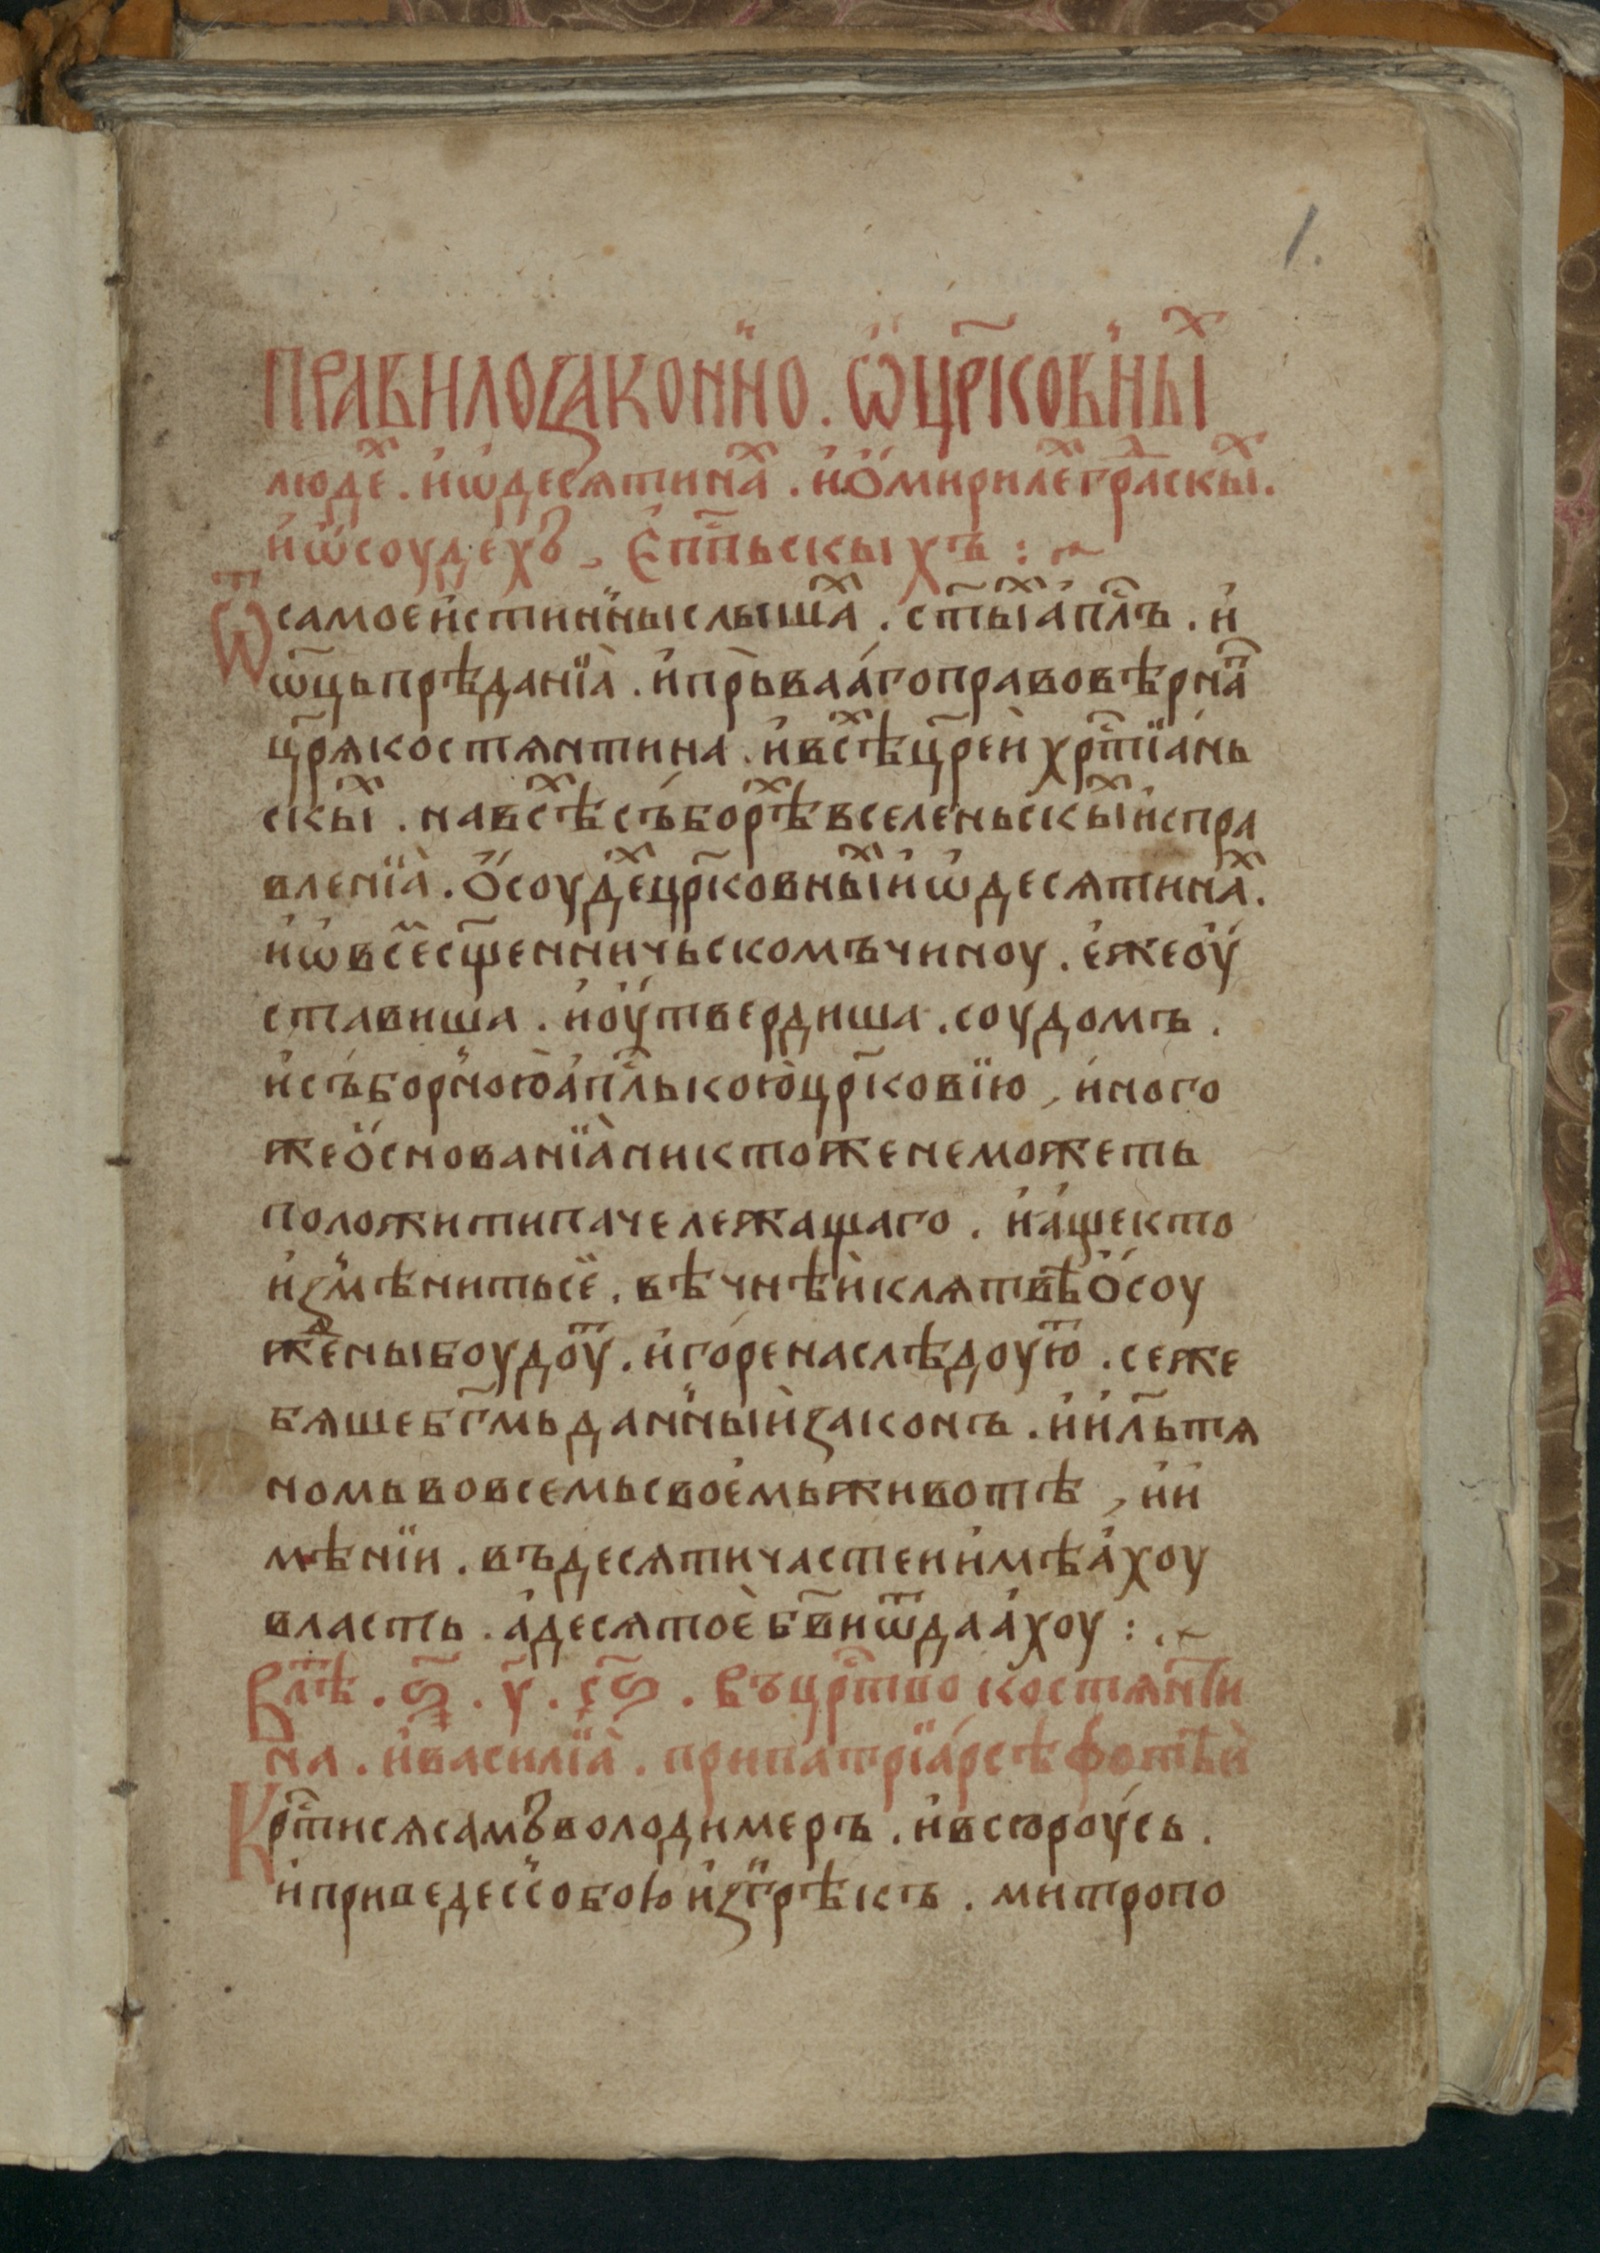 1.
ПРАВИЛО ЗАКОННО . Ѡ ЦР҃КОВНЫⷯ
людеⷯ . и ѡ десѧтинаⷯ . и о мирилеⷯ граⷣскыⷯ .
и ѡ соудехъ , Єпⷭ҇пьскыхъ : ~
Ѿ самое истинны слышаⷯ . ст҃ыⷯ апⷭ҇лъ . и
ѡц҃ь прѣданїа . и прьвааго правовѣрнаⷢ
цр҃ѧ костѧнтина . и всѣⷯ цр҃еи хрⷭ҇тїань
скыⷯ . на всѣⷯ съборѣⷯ вселеньскыⷯ испра
вленїа . о соудеⷯ цр҃ковныⷯ и ѡ десѧтинаⷯ .
и ѡ всеⷨ сщ҃енничьскомъ чиноу . еже оу
ставиша . и оутвердиша . соудомъ .
и съборною апⷭ҇лькою цр҃ковїю , иного
же основанїа никтоже не можеть
положити паче лежащаго . и аще кто
измѣнить се . вѣчнѣи клѧтвѣ осоу
жⷣены боудоуⷮ . и горе наслѣдоуюⷮ . се же
бѧше бг҃мь данныи законъ . и и҃льтѧ
номь во всемь своемь животѣ , и и
мѣнїи . въ десѧти частеи имѣахоу
власть . а десѧтое бв҃и ѿдаахоу : ~
В лⷮѣ . ҂ѕ҃ . у҃ . ч҃ѕ . въ црⷭ҇тво костѧнти
на . и василїа . при патрїарсѣ фотѣи
Крⷭ҇тисѧ самъ володимеръ . и всю роусь .
и приведе с собою из грѣкъ . митропо